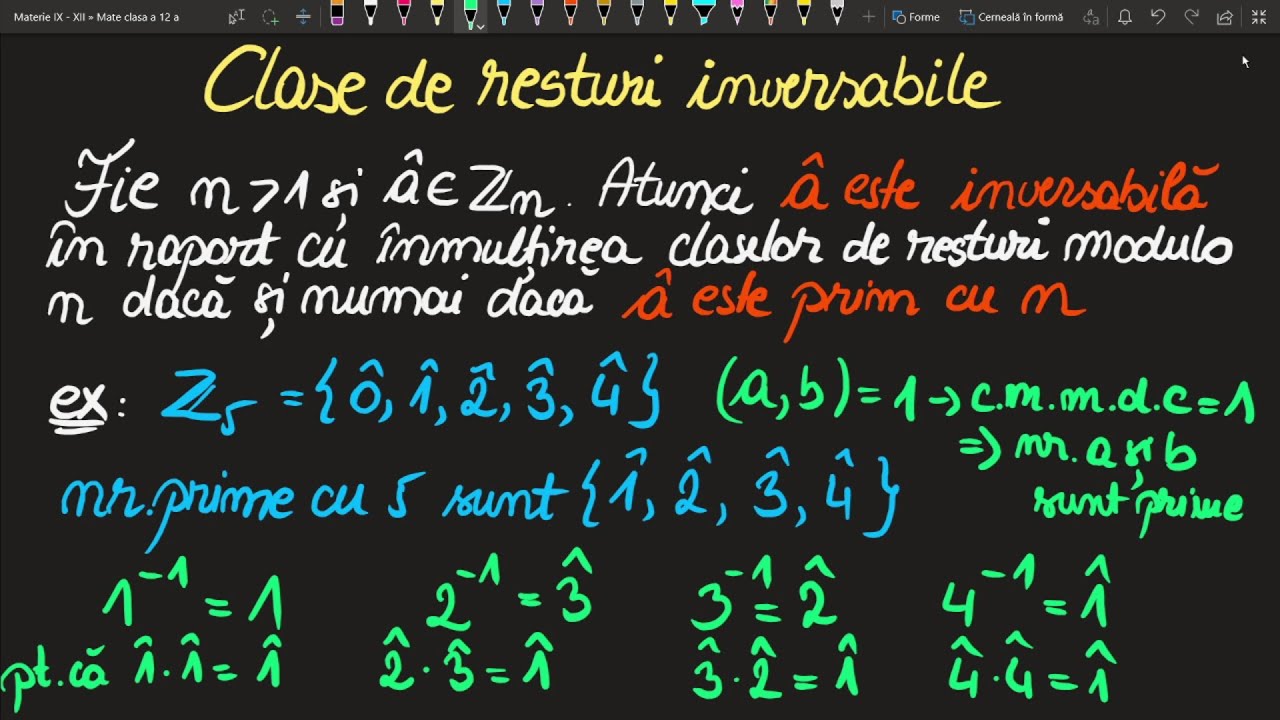 Materie IX - XII » Mate clasa a 12 a
Forme
Cerneală în formă
Clase de resturi inversabile
Fie n > 1 și â ∈ ℤₙ. Atunci â este inversabilă
în raport cu înmulțirea claselor de resturi modulo
n dacă și numai dacă â este prim cu n
ex: ℤ₅ = {0̂, 1̂, 2̂, 3̂, 4̂} (a, b) = 1 → c.m.m.d.c = 1
⇒ nr. a și b
nr. prime cu 5 sunt {1̂, 2̂, 3̂, 4̂}
sunt prime
1⁻¹ = 1 2⁻¹ = 3̂ 3⁻¹ = 2̂ 4⁻¹ = 1̂
pt. că 1̂ · 1̂ = 1̂ 2̂ · 3̂ = 1̂ 3̂ · 2̂ = 1̂ 4̂ · 4̂ = 1̂